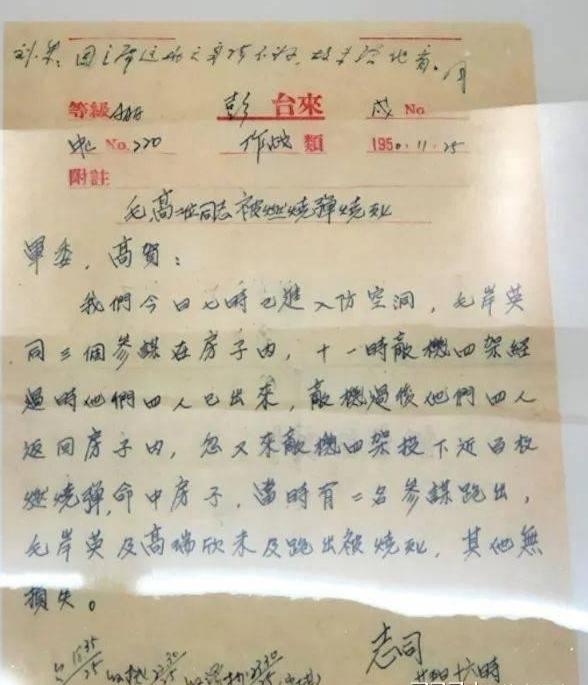 刘、
等級 AAAA 彭 台來 戌 No
No.220 作战 類 1950.11.25
附註
毛高二同志被燃燒彈燒死
軍委，高賀：
我們今日七時已進入防空洞，毛岸英
同三個參謀在房子內，十一時敵機四架經
過時他們四人已出來，敵機過後他們四人
返回房子內，忽又來敵機四架投下近百枚
燃燒彈，命中房子，當時有二名參謀跑出，
毛岸英及高瑞欣未及跑出被燒死，其他無
損失。
志司
16 35 / 25 23 30 / 25 23 30 / 25
十六時